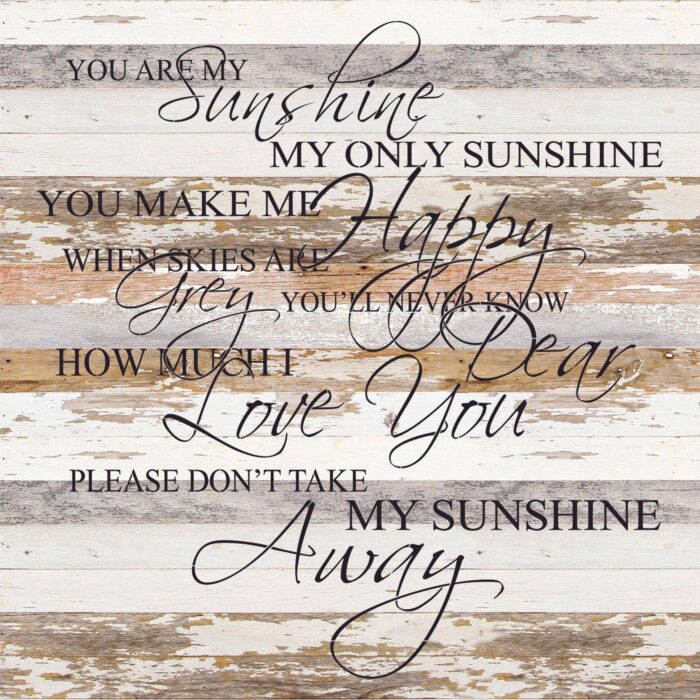 YOU ARE MY
Sunshine
MY ONLY SUNSHINE
YOU MAKE ME Happy
WHEN SKIES ARE
Grey YOU'LL NEVER KNOW
Dear
HOW MUCH I
Love You
PLEASE DON'T TAKE
MY SUNSHINE
Away